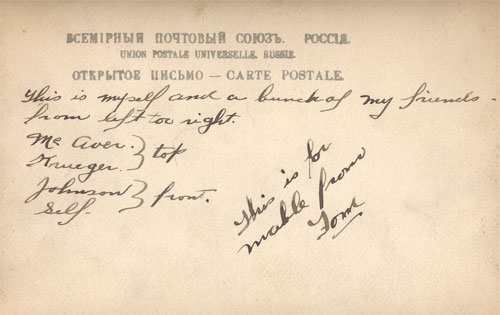 ВСЕМІРНЫЙ ПОЧТОВЫЙ СОЮЗЪ. РОССІЯ.
UNION POSTALE UNIVERSELLE. RUSSIE.
ОТКРЫТОЕ ПИСЬМО — CARTE POSTALE.
This is myself and a bunch of my friends -
from left too right.
Mc Aver. } top
Krueger.
Johnson } front.
Self.
This is for
mable from
Tom